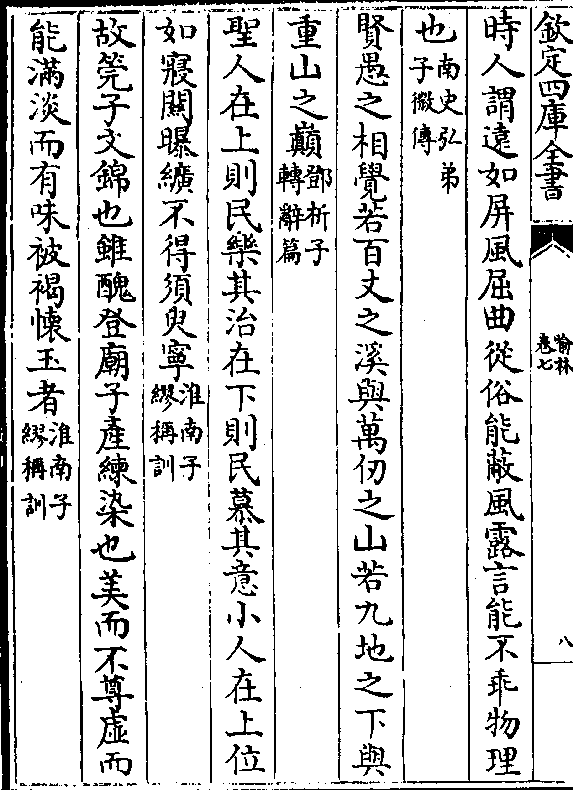 欽定四庫全書
喻林
卷七
八
時人謂遠如屏風屈曲從俗能蔽風露言能不乖物理
也南史弘弟
子微傳
賢愚之相覺若百丈之溪與萬仞之山若九地之下與
重山之巔鄧析子
轉辭篇
聖人在上則民樂其治在下則民慕其意小人在上位
如寢關曝纊不得須臾寧淮南子
繆稱訓
故筦子文錦也雖醜登廟子產練染也美而不尊虛而
能滿淡而有味被褐懷玉者淮南子
繆稱訓